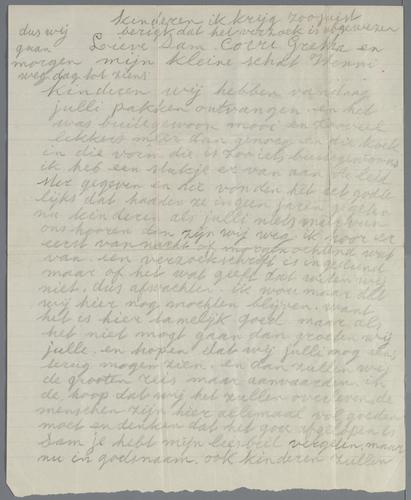 kinderen ik krijg zoojuist
bericht dat het verzoek is afgewezen
dus wij
gaan
morgen
weg dag tot ziens
Lieve Sam. Corri Gretha en
mijn kleine schat Henni
kinderen wij hebben vandaag
julli pakken ontvangen en het
was buitegewoon mooi en zooveel
lekkers meer dan genoeg en die koek
in die vorm die is zoo iets buitegewoons
ik heb een stukje er van aan de leid
ster gegeven en die vonden het eet godde
lijks dat hadden ze in geen jaren gegeten
nu kinderen als julli niets meer van
ons hooren dan zijn wij weg ik hoor er
eerst van nacht of morgenochtend wat
van. een verzoekschrift is ingediend
maar of het wat geeft dat weten wij
niet, dus afwachten. ik wou maar dat
wij hier nog mochten blijven. want
het is hier tamelijk goed maar als
het niet mogt gaan dan groeten wij
julle. en hopen dat wij julli nog eens
terug mogen zien. en dan zullen wij
de grooten reis maar aanvaarden. in
de hoop dat wij het zullen overleven, de
menschen zijn hier allemaal vol goeden
moet en denken dat het gou afgeloopen is
Sam je hebt mijn leesbril vergeten, maar
nu in godsnaam. ook kinderen zullen